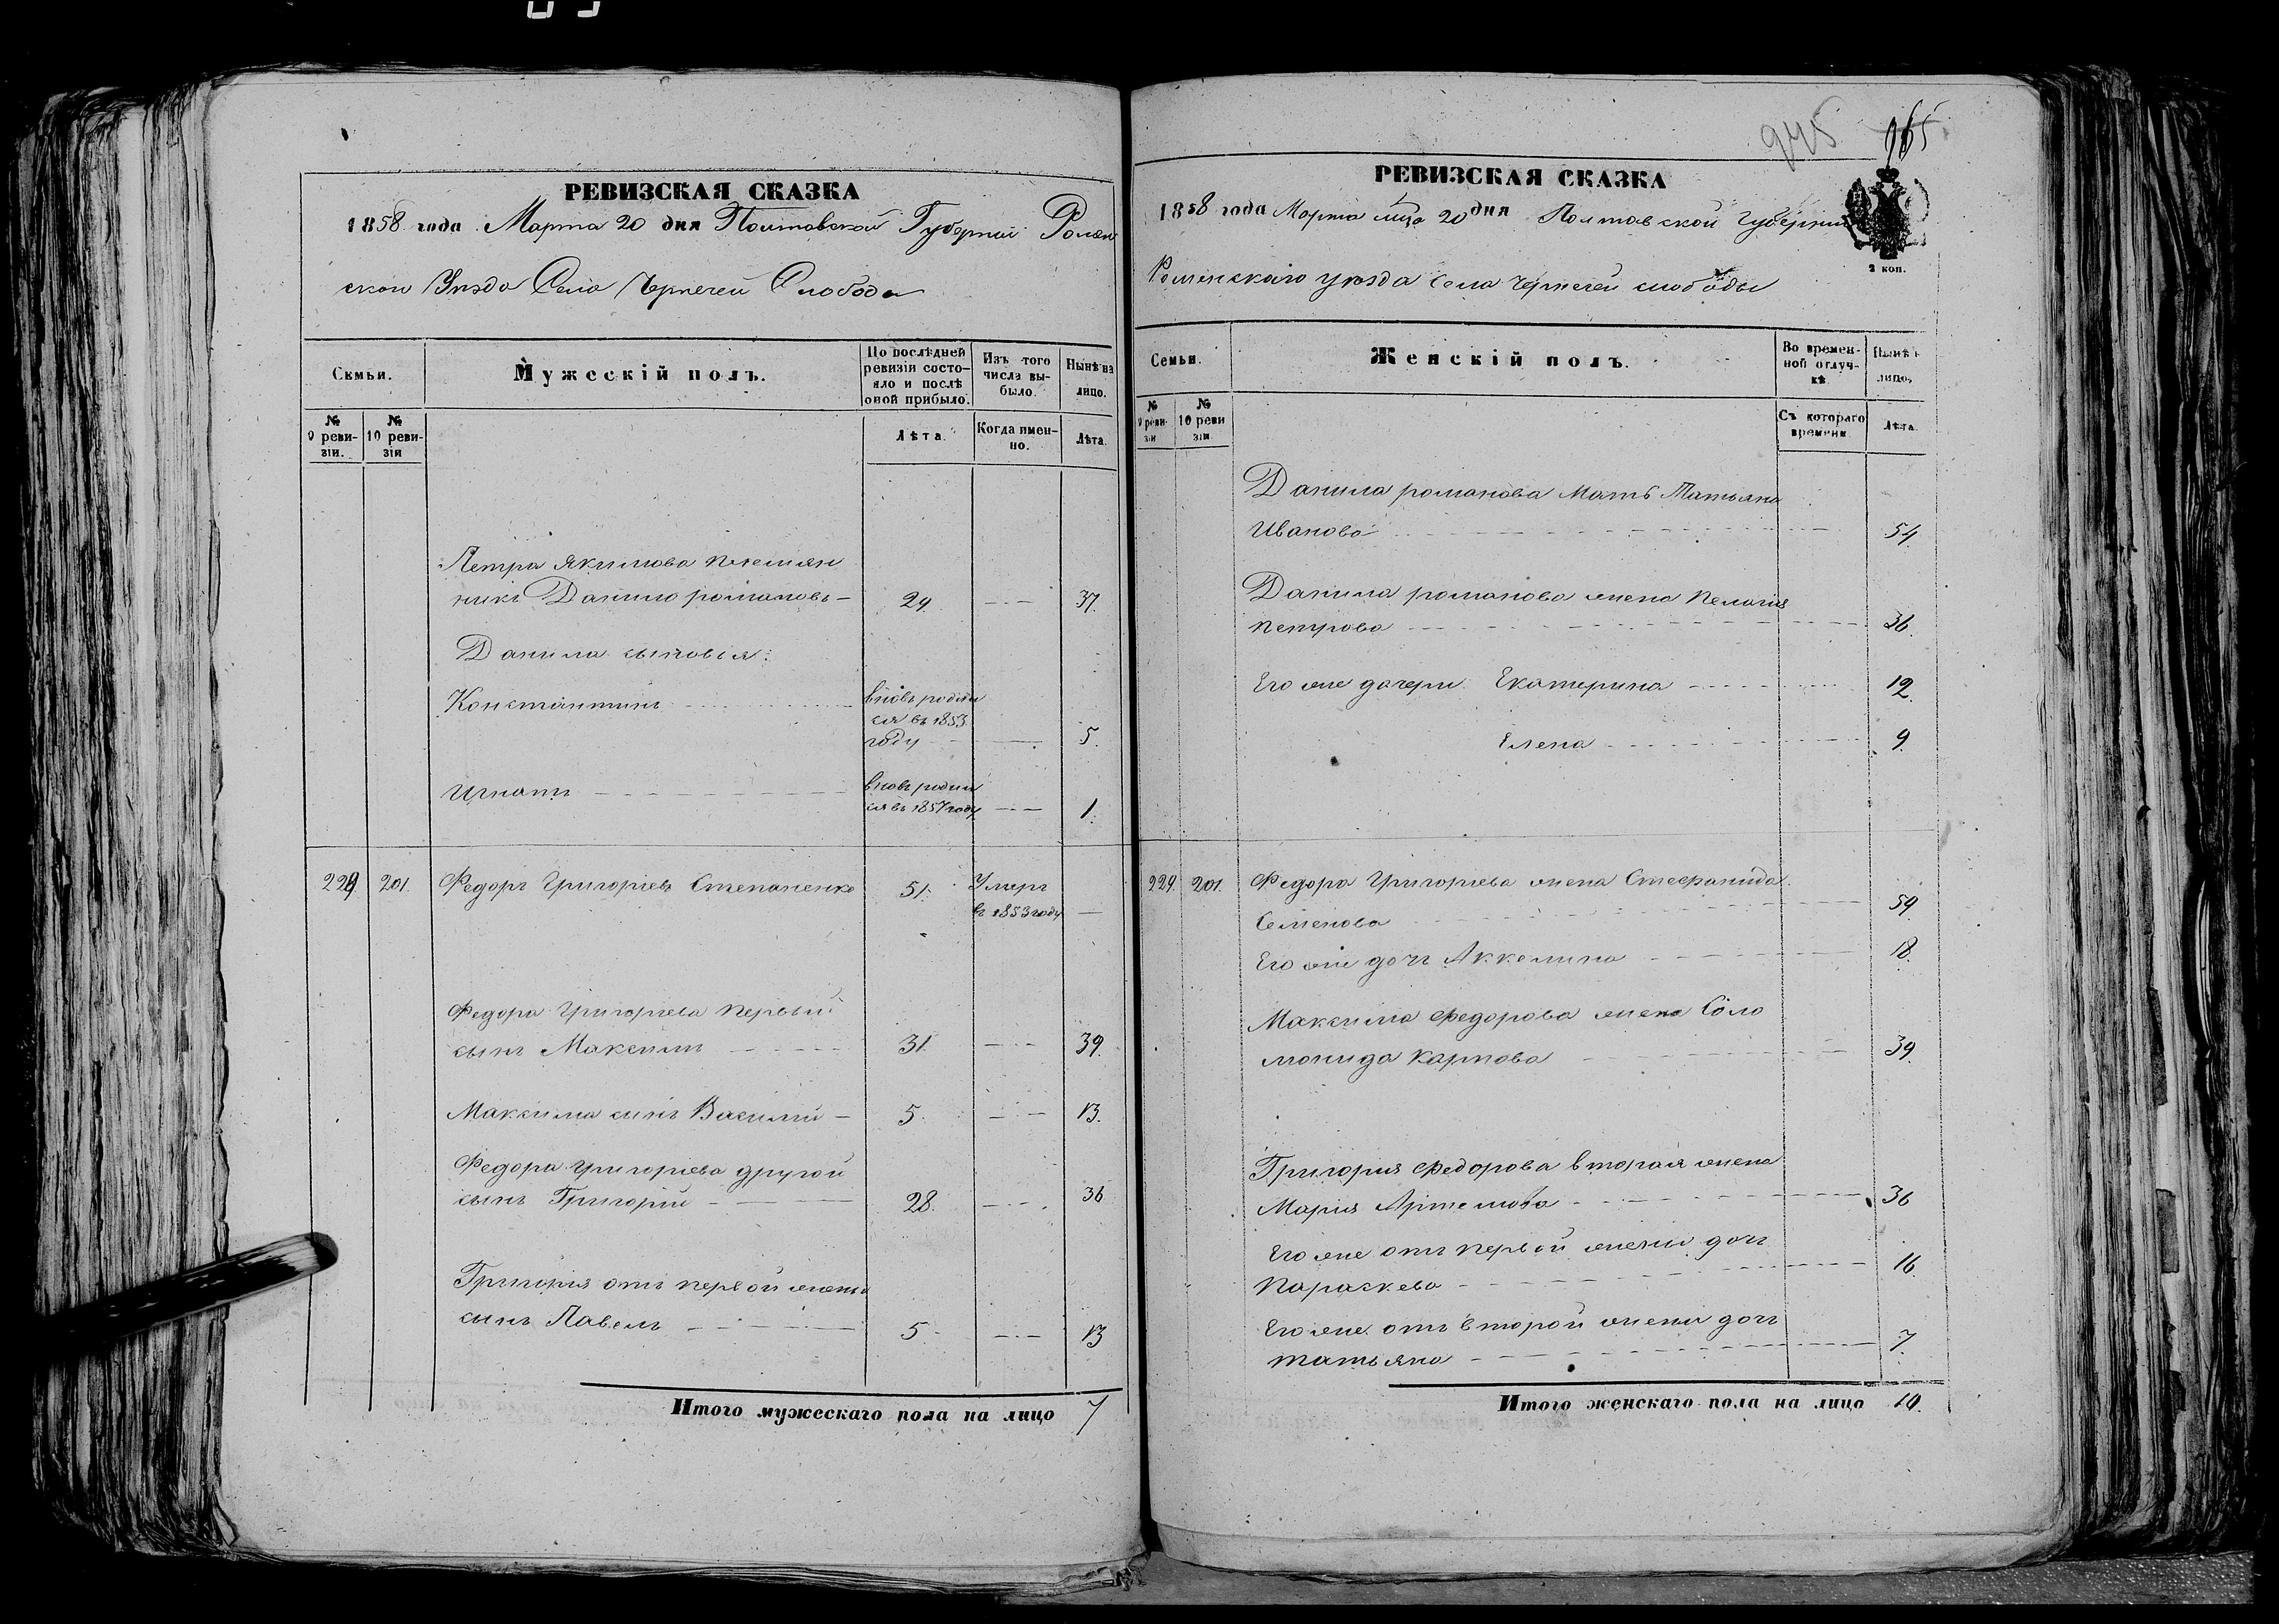 РЕВИЗСКАЯ СКАЗКА
1858 года Марта 20 дня Полтавской Губернии Ромен
ской Уезда Села Чернечей Слобода
Семьи.
Мужескій полъ.
По послѣдней ревизіи состояло и послѣ оной прибыло.
Изъ того числа выбыло.
Нынѣ на лицо.
№ 9 ревизіи.
№ 10 ревизіи
Лѣта.
Когда именно.
Лѣта.
Петра Якимова племян
никъ Данило романовъ — 29 — 37.
Данила сыновья:
Константинъ вновь родил
ся въ 1853
году — 5.
Игнатъ вновь родил
ся въ 1857 году — 1.
229 201. Федоръ Григоріевъ Степаненко 51. Умеръ
въ 1853 году —
Федора Григоріева первый
сынъ Максимъ 31. — 39.
Максима сынъ Василий — 5. — 13.
Федора Григоріева другой
сынъ Григорій 28. — 36
Григория отъ первой жены
сынъ Павелъ 5 — 13
Итого мужескаго пола на лицо 7
945 965
РЕВИЗСКАЯ СКАЗКА
1858 года Марта м̃ца 20 дня Полтавской Губернии
Роменскаго уезда села Чернечей слободы
2 коп.
Семьи.
Женскій полъ.
Во временной отлучкѣ.
Нынѣ на лицо.
№ 9 ревизіи
№ 10 ревизіи.
Съ котораго времени.
Лѣта.
Данила романова Мать Татьяна
Иванова 54.
Данила романова жена Пелагия
Петрова 36.
Его же дочери Екатерина 12.
Елена 9.
229. 201. Федора Григоріева жена Стефанида
Семенова 59
Его же дочь Аккелина 18.
Максима Федорова жена Соло
монида Карпова 39.
Григория Федорова вторая жена
Мария Артемова 36
Его же отъ первой жены дочь
Параскева 16.
Его же отъ второй жены дочь
татьяна 7
Итого женскаго пола на лицо 10.